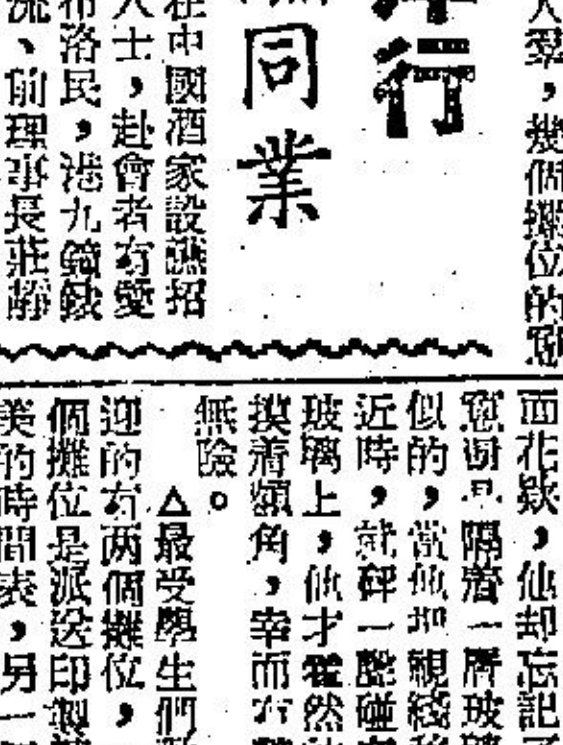 人羣,幾個攤位的
行
同業
在中國酒家設讌招
人士,赴會者有愛
布洛民,港九鐘錶
流、前理事長莊靜
面花欵,他却忘記
隔着一層玻璃
似的,當他把視綫移
近時,就砰一聲碰
玻璃上,他才霍然
摸着額角,幸而有
無險。
△最受學生們
迎的有两個攤位,
個攤位是派送印製
美的時間表,另一